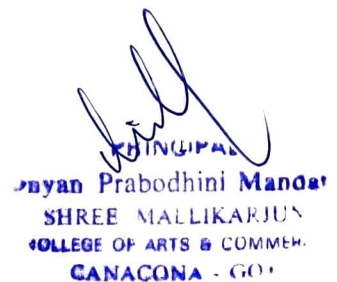 PRINCIPAL
Dnyan Prabodhini Mandal
SHREE MALLIKARJUN
COLLEGE OF ARTS & COMMER.
CANACONA - GOA